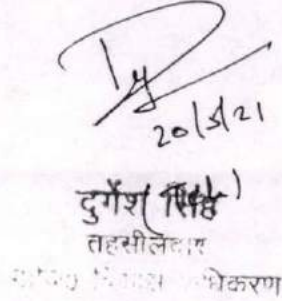 20/5/21
दुर्गेश सिंह
तहसीलदार
विकास प्राधिकरण